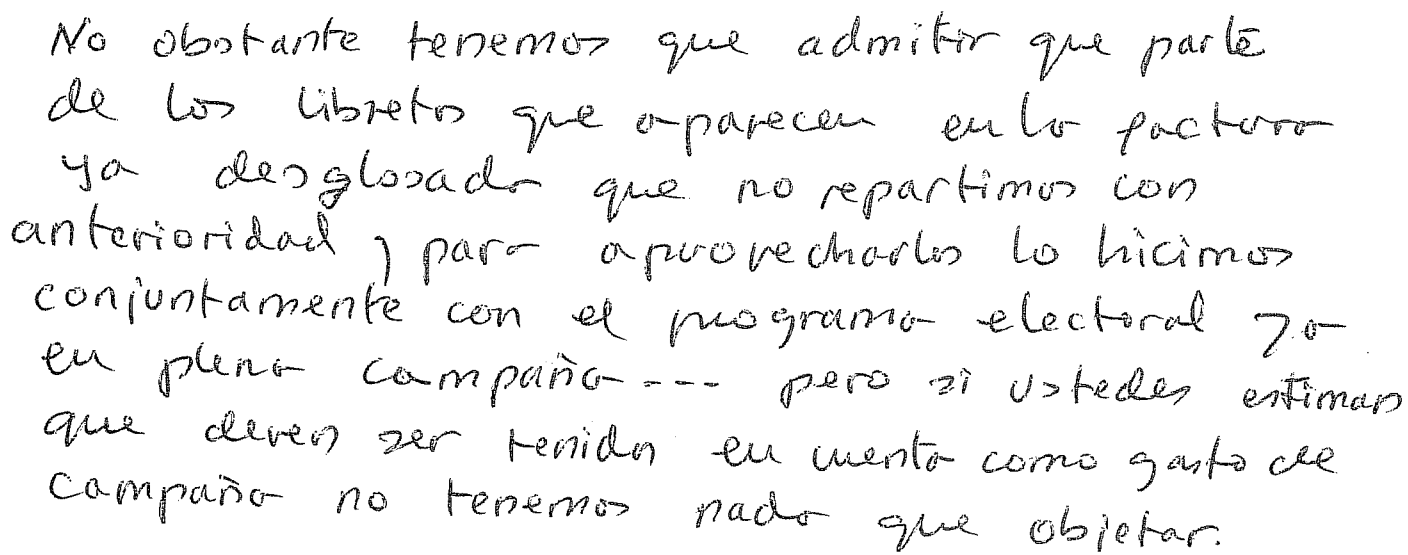 No obstante tenemos que admitir que parte
de los libretos que aparecen en la factura
ya desglosada que no repartimos con
anterioridad, para aprovecharlos lo hicimos
conjuntamente con el programa electoral ya
en plena campaña --- pero si ustedes estiman
que deven ser tenidos en cuenta como gasto de
campaña no tenemos nada que objetar.